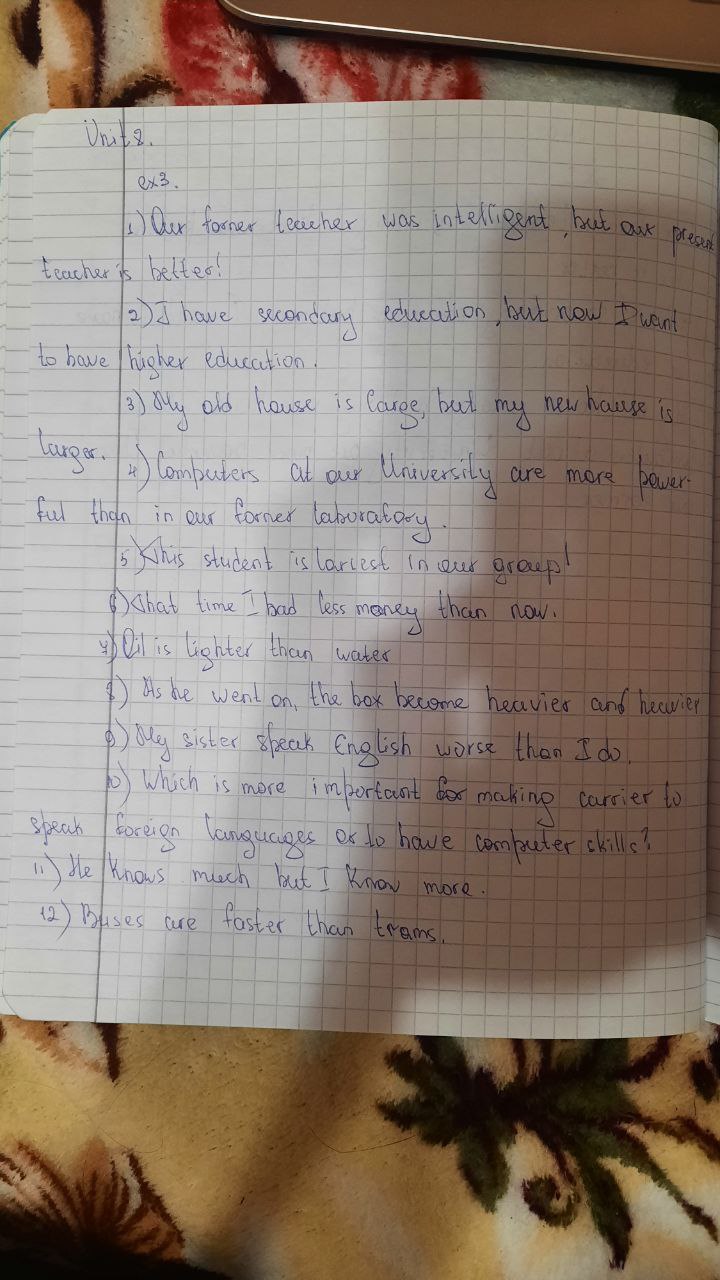 Unit 8.
ex3.
1) Our forner teacher was intelligent, but our present
teacher is better!
2) I have secondary education, but now I want
to have higher education.
3) My old house is large, but my new hause is
larger.
4) Computers at our University are more power-
ful than in our forner laboratory.
5) This student is laziest in our group!
6) That time I had less money than now.
7) Oil is lighter than water
8) As he went on, the box become heavier and heavier
9) My sister speak English worse than I do.
10) Which is more important for making carrier to
speak foreign languages or to have computer skills?
11) He knows much but I know more.
12) Buses are faster than trams.